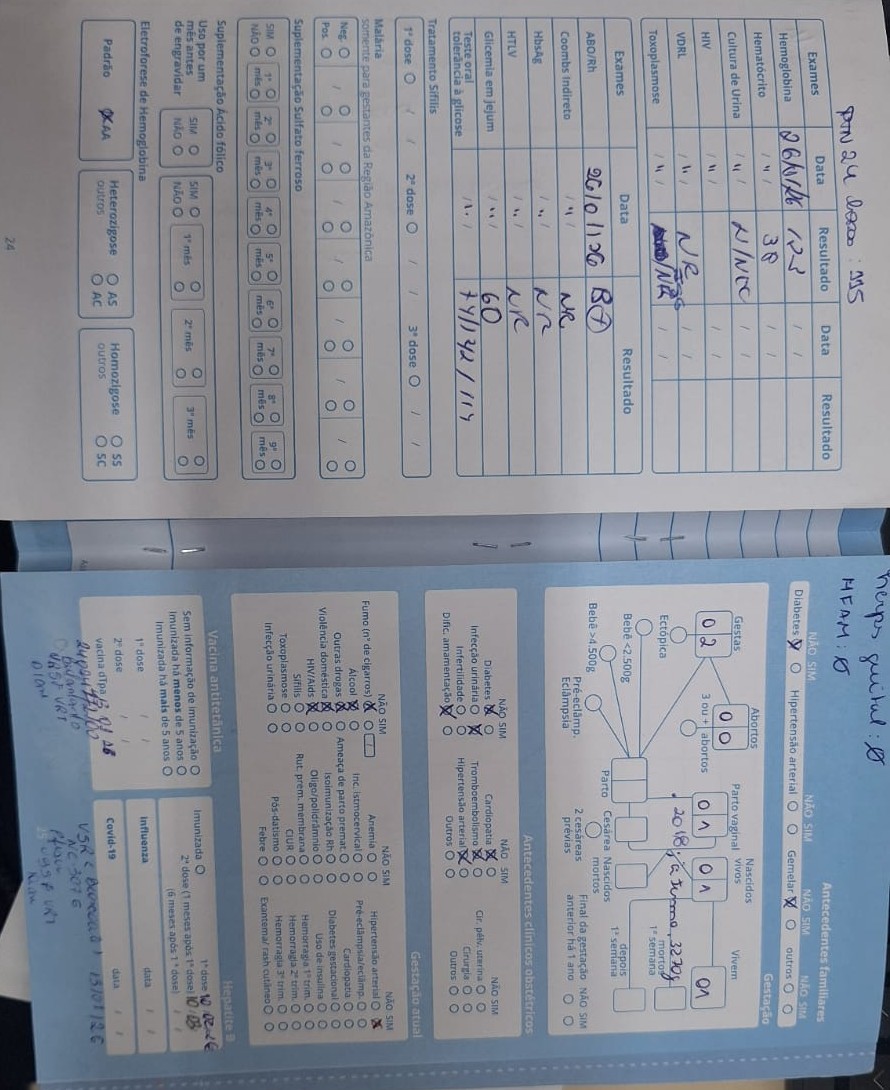 PTN 24 horas : 115
Exames Data Resultado Data Resultado
Hemoglobina 26/01/26 12,2 / /
Hematócrito / " / 39 / /
Cultura de Urina / " / / /
HIV / " / / /
VDRL / " / NR / /
Toxoplasmose / " / / /
Exames Data Resultado
ABO/Rh 26/01/26 B+
Coombs Indireto / " / NR
HbsAg / " / NR
HTLV / " / NR
Glicemia em jejum / " / 60
Teste oral tolerância à glicose / " / 74/142/114
Tratamento Sífilis
1ª dose / / 2ª dose / / 3ª dose / /
Malária
somente para gestantes da Região Amazônica
Neg. / / / / / /
Pos.
Suplementação Sulfato ferroso
SIM 1º 2º 3º 4º 5º 6º 7º 8º 9º
NÃO mês mês mês mês mês mês mês mês mês
Suplementação Ácido fólico
Uso por um mês antes de engravidar
SIM SIM
NÃO NÃO 1º mês 2º mês 3º mês
Eletroforese de Hemoglobina
Padrão X AA
Heterozigose AS
outros AC
Homozigose SS
outros SC
24
Herpes genital : Ø
MFAM : Ø
Antecedentes familiares
NÃO SIM NÃO SIM NÃO SIM NÃO SIM
Diabetes X Hipertensão arterial Gemelar X outros
Gestação
Gestas Abortos Parto vaginal Nascidos vivos Vivem
0 2 0 0 0 1 0 1 01
Ectópica 3 ou + abortos
. 2018, a termo, 3270g
mortos 1ª semana
depois 1ª semana
Bebê <2.500g
Parto Cesárea Nascidos mortos
Bebê >4.500g
Pré-eclâmp. Eclâmpsia
2 cesáreas prévias
Final da gestação anterior há 1 ano NÃO SIM
Antecedentes clínicos obstétricos
NÃO SIM NÃO SIM NÃO SIM
Diabetes X Cardiopatia X Cir. pélv. uterina
Infecção urinária X Tromboembolismo X Cirurgia
Infertilidade Hipertensão arterial X Outros
Dific. amamentação X Outros
Gestação atual
NÃO SIM NÃO SIM NÃO SIM
Fumo (nº de cigarros) X Anemia Hipertensão arterial X
Álcool X Inc. istmocervical Pré-eclâmpsia/eclâmp.
Outras drogas X Ameaça de parto premat. Cardiopatia
Violência doméstica X Isoimunização Rh Diabetes gestacional
HIV/Aids X Oligo/polidrâmnio Uso de insulina
Sífilis Rut. prem. membrana Hemorragia 1º trim.
Toxoplasmose CIUR Hemorragia 2º trim.
Infecção urinária Pós-datismo Hemorragia 3º trim.
Febre Exantema/ rash cutâneo
Vacina antitetânica
Sem informação de imunização
Imunizada há menos de 5 anos
Imunizada há mais de 5 anos
1ª dose / /
2ª dose / /
vacina dTpa
Hepatite B
Imunizada 1ª dose
2ª dose (1 meses após 1ª dose)
(6 meses após 1ª dose)
Influenza data / /
Covid-19 data / /
13/01/26